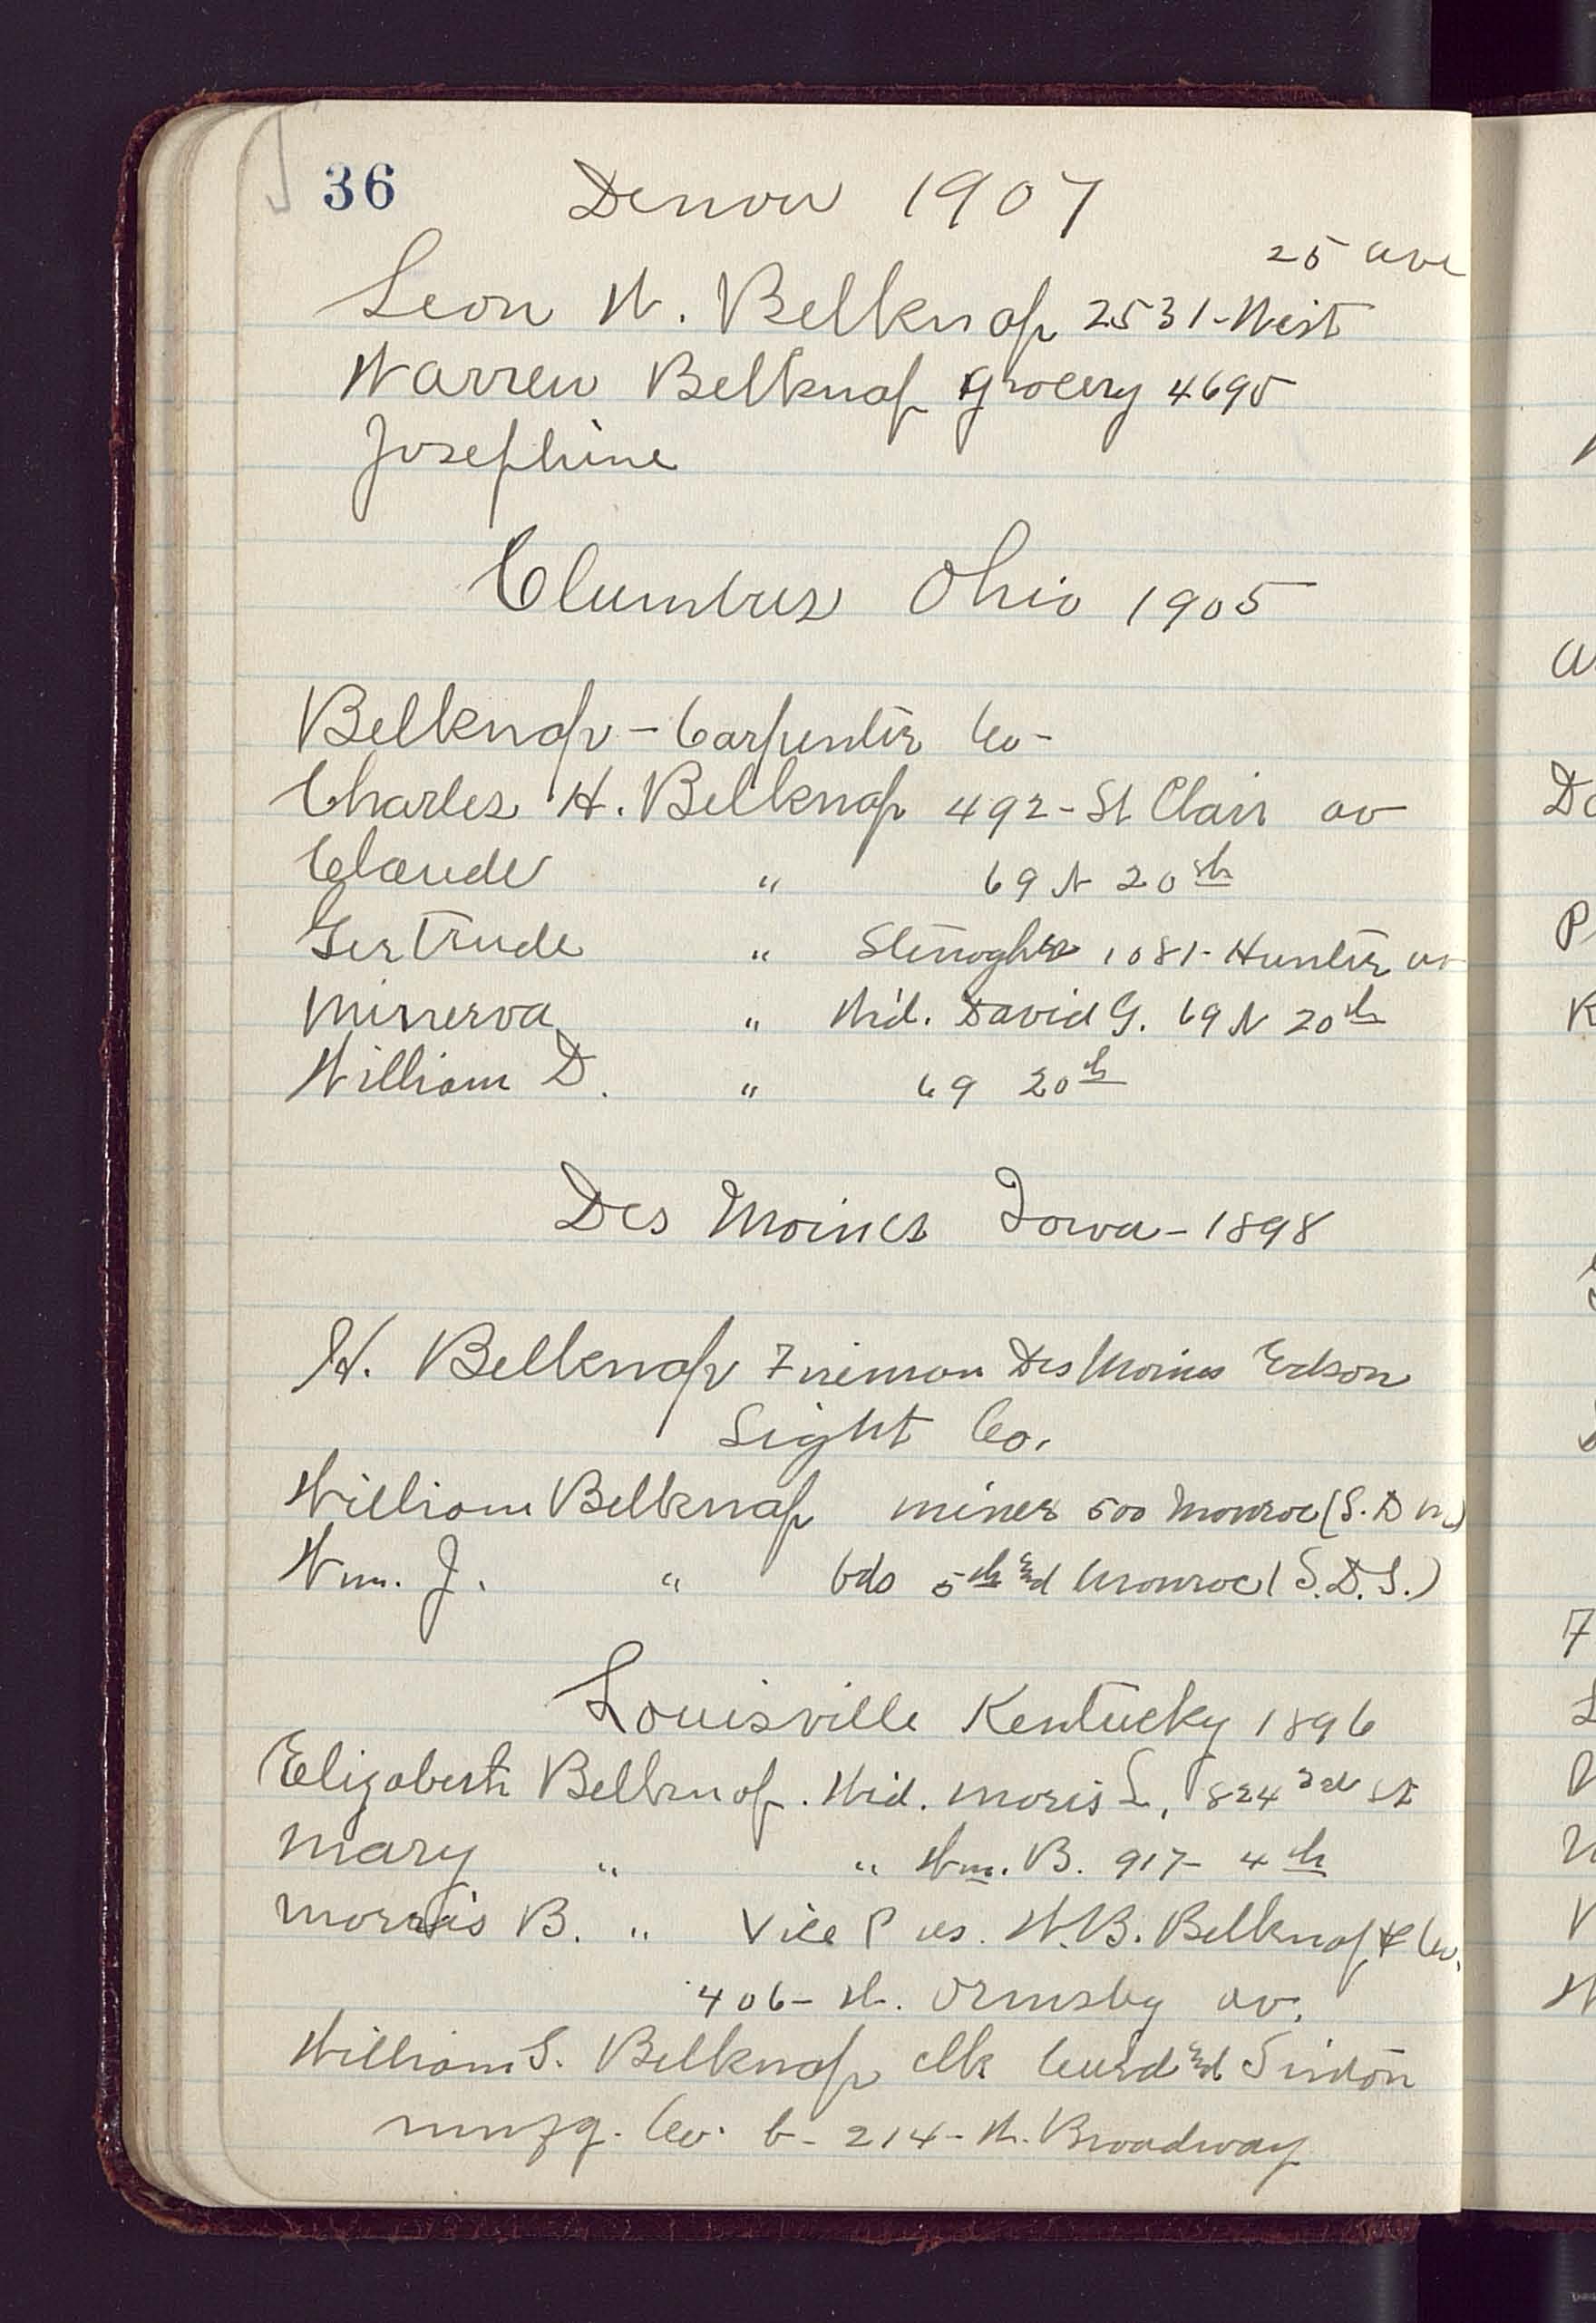 36 Denver 1907
25 ave
Leon W. Belknap 2531-West
Warren Belknap grocery 4695
Josephine
Clumbus Ohio 1905
Belknap - Carpenter Co -
Charles H. Belknap 492 - St Clair av
Claude " 69 N 20th
Gertrude " Stenogher 1081 - Hunter av
Minerva " Wid. David G. 69 N 20th
William D. " 69 20th
Des Moines Iowa - 1898
H. Belknap Fireman Des Moines Edson
Light Co.
William Belknap miner 500 Monroe (S. D M)
Wm. J. " bds 5th Monroe (S. D. S.)
Louisville Kentucky 1896
Elizabeth Belknap. Wid. Moris L, 824 St
Mary " " Wm. B. 917 - 4th
Morris B. " Vice Pres. W. B. Belknap & Co.
406 - W. Ormsby av.
William S. Belknap clk
mnfg. Co. b - 214 - W. Broadway